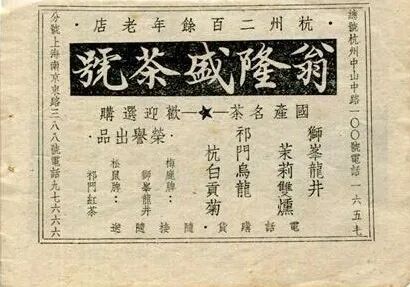 杭州二百餘年老店
翁隆盛茶號
國產名茶—★—歡迎選購
獅峯龍井
茉莉雙燻
祁門烏龍
杭白貢菊
·榮譽出品·
梅鹿牌：
獅峯龍井
松鼠牌：
祁門紅茶
電話購貨·隨接隨送
總號杭州中山中路一〇〇號電話一六五七
分號上海南京東路三八八號電話九七六六六